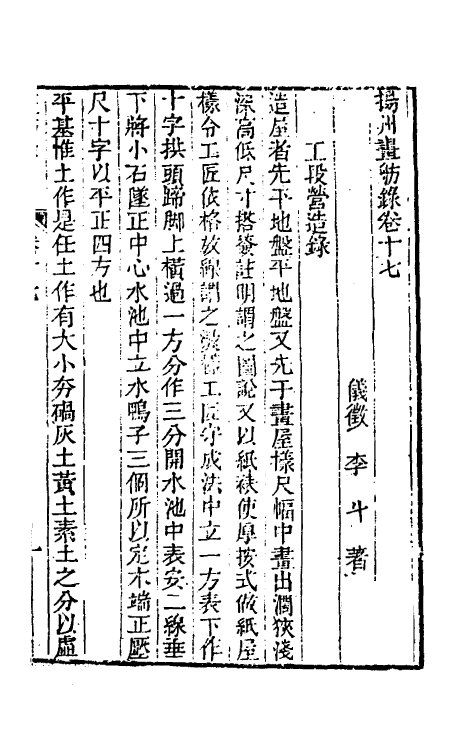 揚州畫舫錄卷十七
儀徵 李斗著
工段營造錄
造屋者先平地盤平地盤又先于畫屋樣尺幅中畫出濶狹淺
深高低尺寸搭簽註明謂之圖說又以紙裱使厚按式做紙屋
樣令工匠依格放線謂之燙樣工匠守成法中立一方表下作
十字拱頭蹄脚上橫過一方分作三分開水池中表安二線垂
下將小石墜正中心水池中立水鴨子三個所以定木端正壓
尺十字以平正四方也
平基惟土作是任土作有大小夯碢灰土黃土素土之分以虛